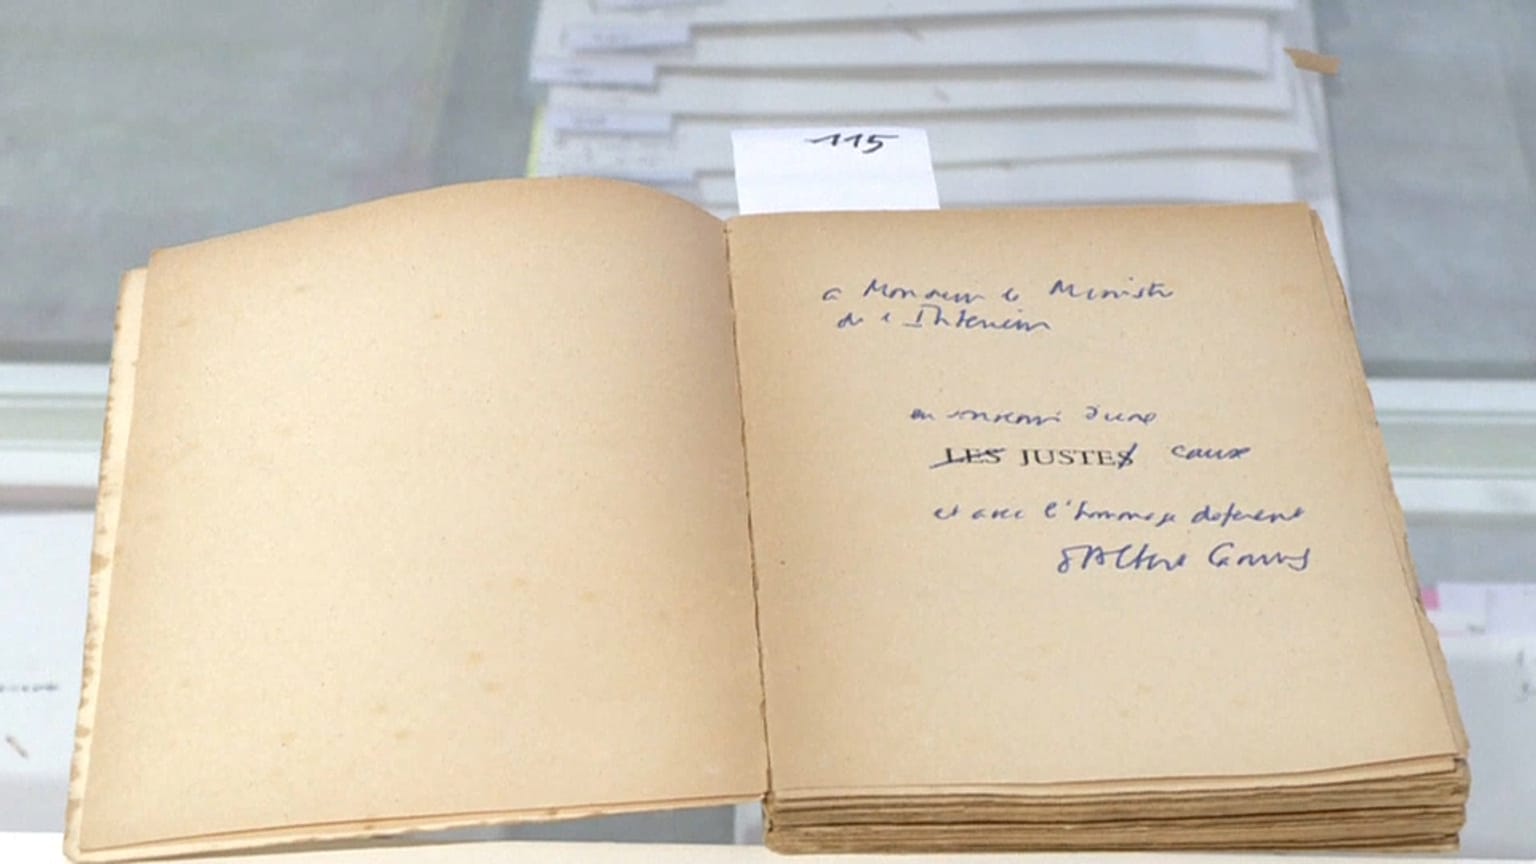 115
a Monsieur le Ministre
de l'Intérieur
en souvenir d'une
LES JUSTES cause
et avec l'hommage déférent
d'Albert Camus